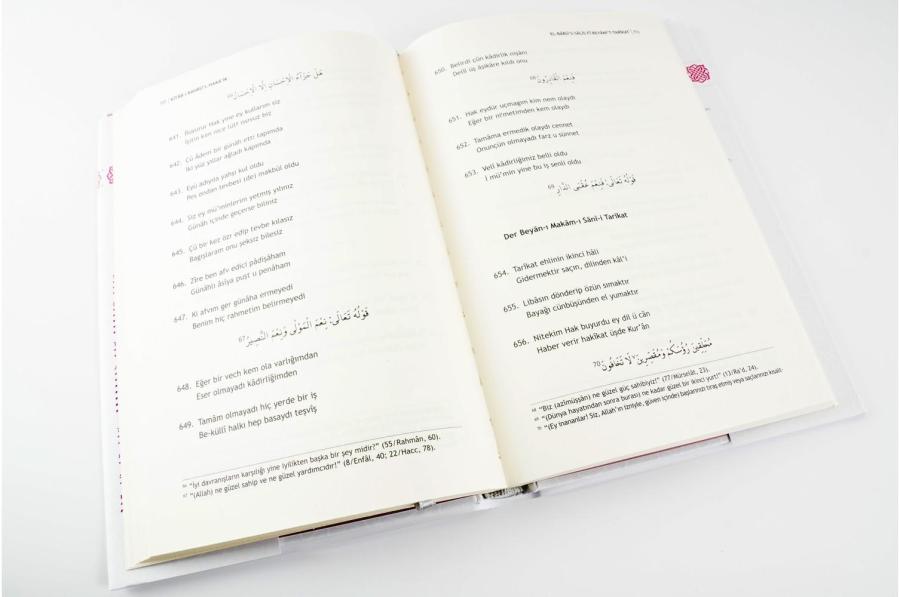 هَلْ جَزَٓاءُ الْاِحْسَانِ اِلَّا الْاِحْسَانُ 66
641. Buyurur Hak yine ey kullarım siz
İşitin kim nice lütf ıssıuz biz
642. Çü Âdem bir günâh etti tapımda
İki yüz yıllar ağladı kapımda
643. Eyü adıyıla yahşi kul oldu
Pes ondan tevbesi (de) makbûl oldu
644. Siz ey mü'minlerim yetmiş yılınız
Günâh içinde geçerse biliniz
645. Çü bir kez özr edip tevbe kılasız
Bağışlaram onu şeksiz bilesiz
646. Zîre ben afv edici pâdişâham
Günâhlı âsîya puşt u penâham
647. Ki afvım ger günâha ermeyedi
Benim hiç rahmetim belirmeyedi
قَوْلُهُ تَعَالٰى: نِعْمَ الْمَوْلٰى وَنِعْمَ النَّص۪يرُ 67
648. Eğer bir vech kem ola varlığımdan
Eser olmayadı kâdirliğimden
649. Tamâm olmayadı hiç yerde bir iş
Be-küllî halkı hep basaydı teşvîş
66 "İyi davranışların karşılığı yine iyilikten başka bir şey midir?" (55/Rahmân, 60).
67 "(Allah) ne güzel sahip ve ne güzel yardımcıdır!" (8/Enfâl, 40; 22/Hacc, 78).
650. Belirdi çün kâdirlik nişânı
Delîl üş âşikâre kıldı onu
فَنِعْمَ الْقَادِرُونَ 68
651. Hak eydür uçmağım kim nem olaydı
Eğer bir ni'metimden kem olaydı
652. Tamâma ermedik olaydı cennet
Onunçün olmayadı farz u sünnet
653. Velî kâdirliğimiz belli oldu
İ mü'min yine bu iş senli oldu
قَوْلُهُ تَعَالٰى: فَنِعْمَ عُقْبَى الدَّارِ 69
Der Beyân-ı Makâm-ı Sânî-i Tarîkat
654. Tarîkat ehlinin ikinci hâli
Gidermektir saçın, dilinden kâl'i
655. Libâsın dönderip özün sımaktır
Bayağı cünbüşünden el yumaktır
656. Nitekim Hak buyurdu ey dil ü cân
Haber verir hakîkat üşde Kur'ân
مُحَلِّق۪ينَ رُؤُ۫سَكُمْ وَمُقَصِّر۪ينَۙ لَا تَخَافُونَ 70
68 "Biz (azîmüşşân) ne güzel güç sahibiyiz!" (77/Mürselât, 23).
69 "(Dünya hayatından sonra burası) ne kadar güzel bir ikinci yurt!" (13/Ra'd, 24).
70 "(Ey inananlar! Siz, Allah'ın izniyle, güven içinde) başlarınızı tıraş etmiş veya saçlarınızı kısalt-